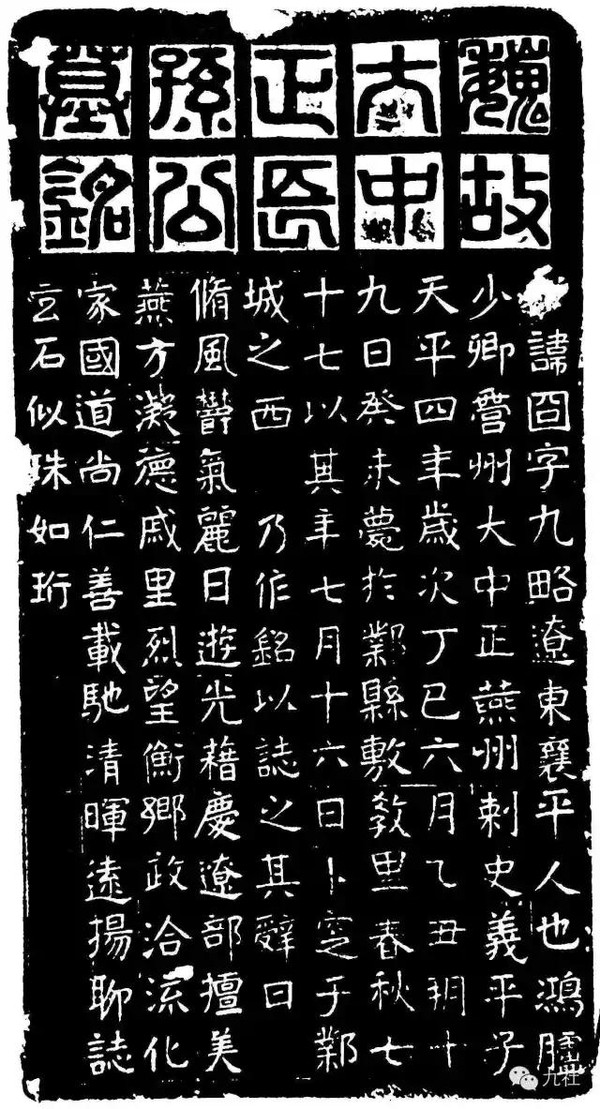 魏故
大中
正長
孫公
墓銘
諱囧字九略遼東襄平人也鴻臚
少卿營州大中正燕州刺史義平子
天平四年歲次丁巳六月乙丑朔十
九日癸未薨於鄴縣敷教里春秋七
十七以其年七月十六日卜窆于鄴
城之西 乃作銘以誌之其辭曰
脩風欝氣麗日遊光藉慶遼部擅美
燕方凝德戚里烈望衡鄉政洽流化
家國道尚仁善載馳清暉遠揚聊誌
玄石似珠如珩
九社